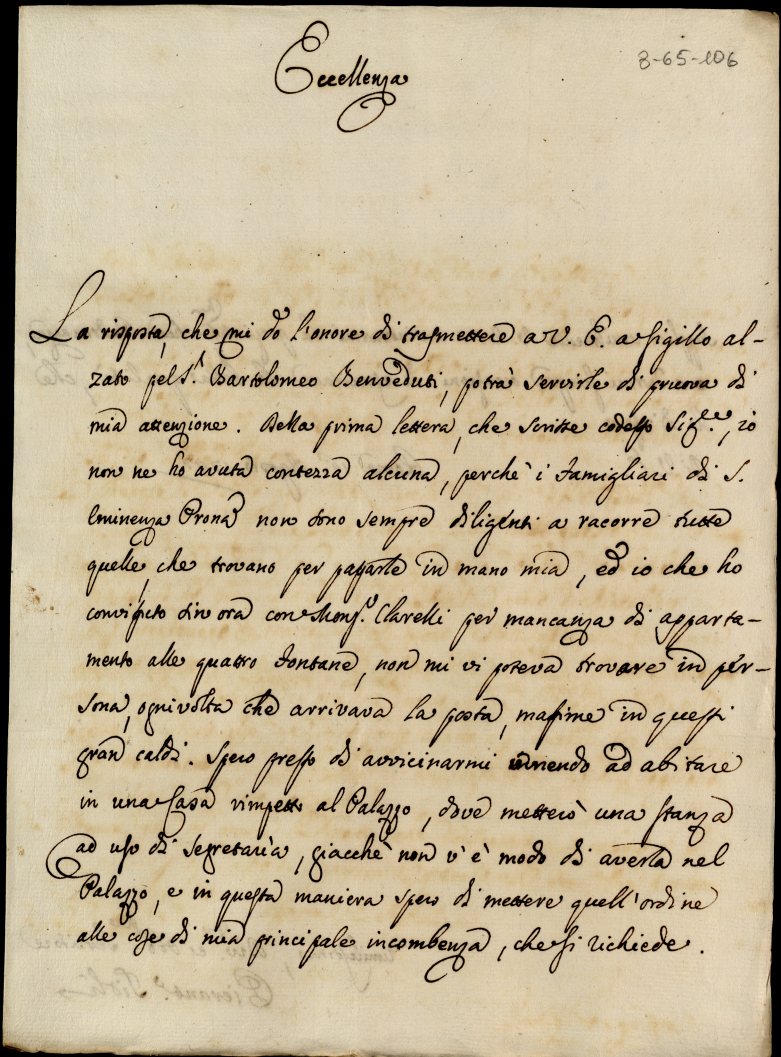 8-65-106
Eccellenza
La risposta, che mi dò l'onore di trasmettere a V. E. a sigillo al-
zato pel S.r Bartolomeo Benveduti, potrà servirle di pruova di
mia attenzione. Della prima lettera, che scrisse codesto Sig.re, io
non ne ho avuta contezza alcuna, perchè i Famigliari di S.
Eminenza Prona non sono sempre diligenti a racorre tutte
quelle, che trovano per passarle in mano mia, ed io che ho
convissuto sin ora con Mons.r Clarelli per mancanza di apparta-
mento alle quattro Fontane, non mi vi poteva trovare in per-
sona, ogni volta che arrivava la posta, massime in questi
gran caldi. Spero presto di avvicinarmi venendo ad abitare
in una Casa rimpetto al Palazzo, dove metterò una stanza
ad uso di segretaria, giacchè non v'è modo di averla nel
Palazzo, e in questa maniera spero di mettere quell'ordine
alle cose di mia principale incombenza, che si richiede.